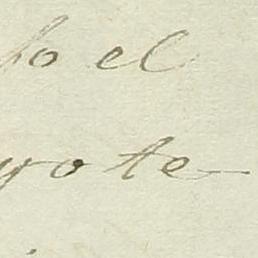 so el
yote